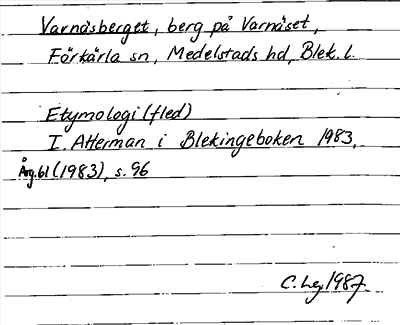 Varnäsberget, berg på Varnäset,
Förkärla sn, Medelstads hd, Blek. l.
Etymologi (fled)
I. Atterman i Blekingeboken 1983,
Årg. 61 (1983), s. 96
C. Ley 1987